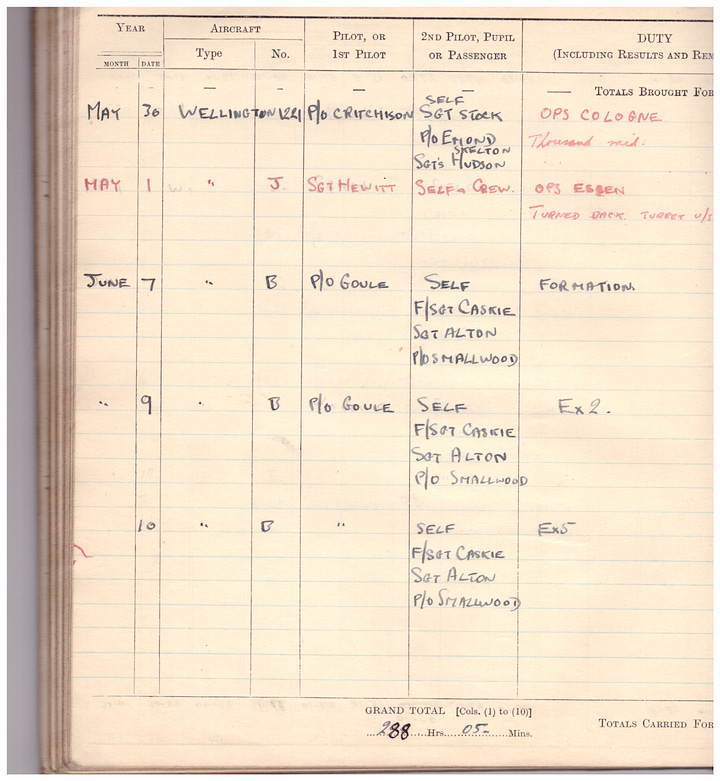 YEAR AIRCRAFT PILOT, OR 2ND PILOT, PUPIL DUTY
MONTH DATE Type No. 1ST PILOT OR PASSENGER (INCLUDING RESULTS AND REM
— — — — — TOTALS BROUGHT FOR
SELF
MAY 30 WELLINGTON 1221 P/O CRITCHISON SGT STOCK OPS COLOGNE
P/O EMOND Thousand raid.
SKELTON
SGT'S HUDSON
MAY 1 W. " J. SGT HEWITT SELF & CREW. OPS ESSEN
TURNED BACK. TURRET U/S
JUNE 7 " B P/O GOULE SELF FORMATION.
F/SGT CASKIE
SGT ALTON
P/O SMALLWOOD
" 9 " B P/O GOULE SELF Ex 2.
F/SGT CASKIE
SGT ALTON
P/O SMALLWOOD
10 " B " SELF Ex5
F/SGT CASKIE
SGT ALTON
P/O SMALLWOOD
GRAND TOTAL [Cols. (1) to (10)]
288 Hrs. 05- Mins. TOTALS CARRIED FOR